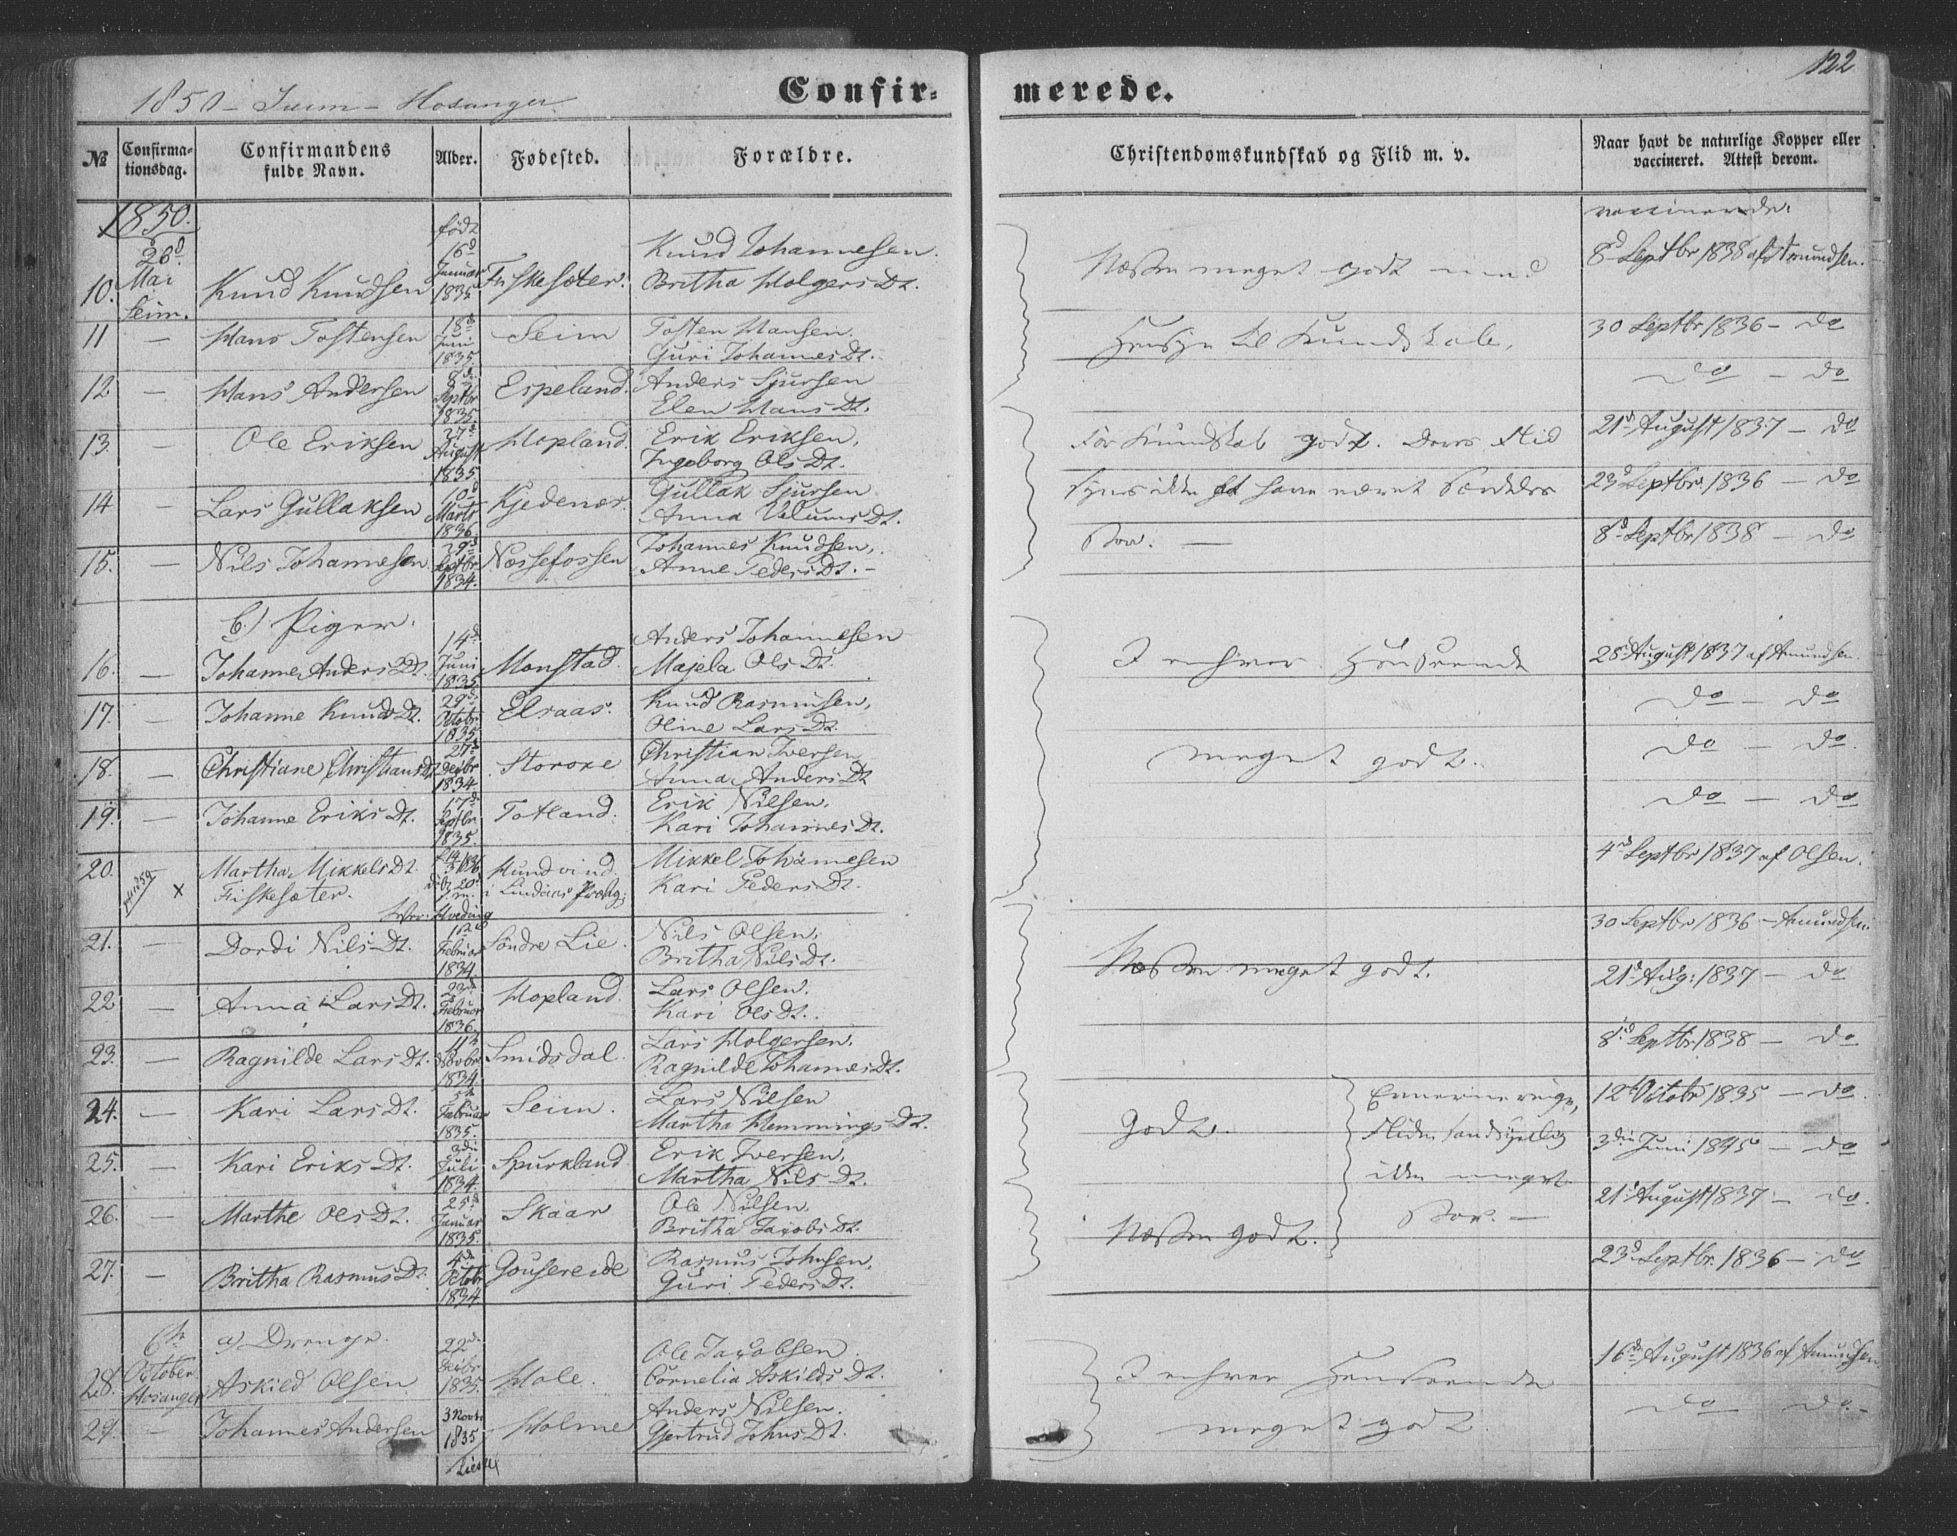 1850 – Seim – Hosanger.
Confir=
merede.
122
№
Confirma-
tionsdag.
Confirmandens
fulde Navn.
Alder.
Fødested.
Forældre.
Christendomskundskab og Flid m. v.
Naar havt de naturlige Kopper eller
vaccineret. Attest derom.
1850.
26d
Mai
Seim.
vaccinerede.
10. Knud Knudsen født 16d Januar 1835 Fiskesæter. Knud Johannesen. Britha Holgers Dt. 8d Septbr 1838 af Amundsen.
Næsten meget godt med
11 — Hans Tostensen 18d Juni 1835. Seim Tosten Hansen. Guri Johannes Dt. 30 Septbr 1836 – do
Hensyn til Kundskab.
12 — Hans Andersen 8de Septbr 1835. Espeland. Anders Sjursen Elen Hans Dt. do – do
13. — Ole Eriksen 27d August 1835 Hopland. Erik Eriksen, Ingeborg Ols Dt. 21d August 1837 – do
for Kundskab godt. Deres Flid
14 — Lars Gullaksen 10d Marts 1836 Kjedenes. Gullak Sjursen Anna Vilums Dt. 23d Septbr. 1836 – do
synes ikke at have været særdeles
15. — Nils Johannesen 29d Septbr 1834. Næssefossen Johannes Knudsen, Anne Peders Dt. 8d Septbr 1838 – do
stor. —
b.) Piger.
16. — Johanne Anders Dt. 14d Juni 1835 Monstad. Anders Johannesen Majela Ols Dt. 28d August 1837 af Amundsen.
I enhver Henseende
17. — Johanne Knuds Dt. 29d Octobr 1835 Elsaas. Knud Rasmusen, Oline Lars Dt. do – do
18. — Christiane Christians Dt 27d Decbr 1834. Storoxe Christian Iversen Anna Anders Dt do – do.
meget godt.
19. — Johanne Eriks Dt. 17d Septbr. 1835. Totland. Erik Nilsen, Kari Johannes Dt. do – do
20. x Martha Mikkels Dt. Fiskesæter. Hundvind i Lindaas Præstg. Mikkel Johannesen Kari Peders Dt. 4d Septbr 1837 af Olsen.
21. — Dordi Nils Dt. 1ste Februar 1834. Søndre Lie. Nils Olsen, Britha Nils Dt. 30 Septbr 1836 – Amundsen
22 — Anna Lars Dt. 23d Februar 1836. Hopland. Lars Olsen. Kari Ols Dt. 21d Aug: 1837 – do
Næsten meget godt.
23. — Ragnilde Lars Dt. 11te Novbr 1834. Smidsdal. Lars Holgersen. Ragnilde Johannes Dt. 8d Septbr. 1838 – do
24. — Kari Lars Dt. 5te Februar 1835. Seim. Lars Nilsen Martha Hemmings Dt. 12te Octobr 1835 – do.
Godt.
25. — Kari Eriks Dt. 3die Juli 1834. Spurkland. Erik Iversen, Martha Nils Dt. 3die Juni 1845 – do
Fliden sandsynlig
ikke meget
stor. —
26. — Marthe Ols Dt. 25d Januar 1835. Skaar Ole Nilsen. Britha Jacobs Dt. 21d August 1837 – do.
Næsten godt.
27. — Britha Rasmus Dt. 4de Octob 1834. Gousereide Rasmus Johnsen. Guri Peders Dt. 23d Septbr. 1836 – do
6te
October
Hosanger
a) Drenge.
28. Askild Olsen 22d 1835. Hole. Ole Jacobsen. Cornelia Askilds Dt. 16d August 1836 af Amundsen.
I enhver Henseende
29. — Johannes Andersen 3 Novbr 1835 Holme Anders Nilsen. Gjertrud Johns Dt. do – do.
meget godt